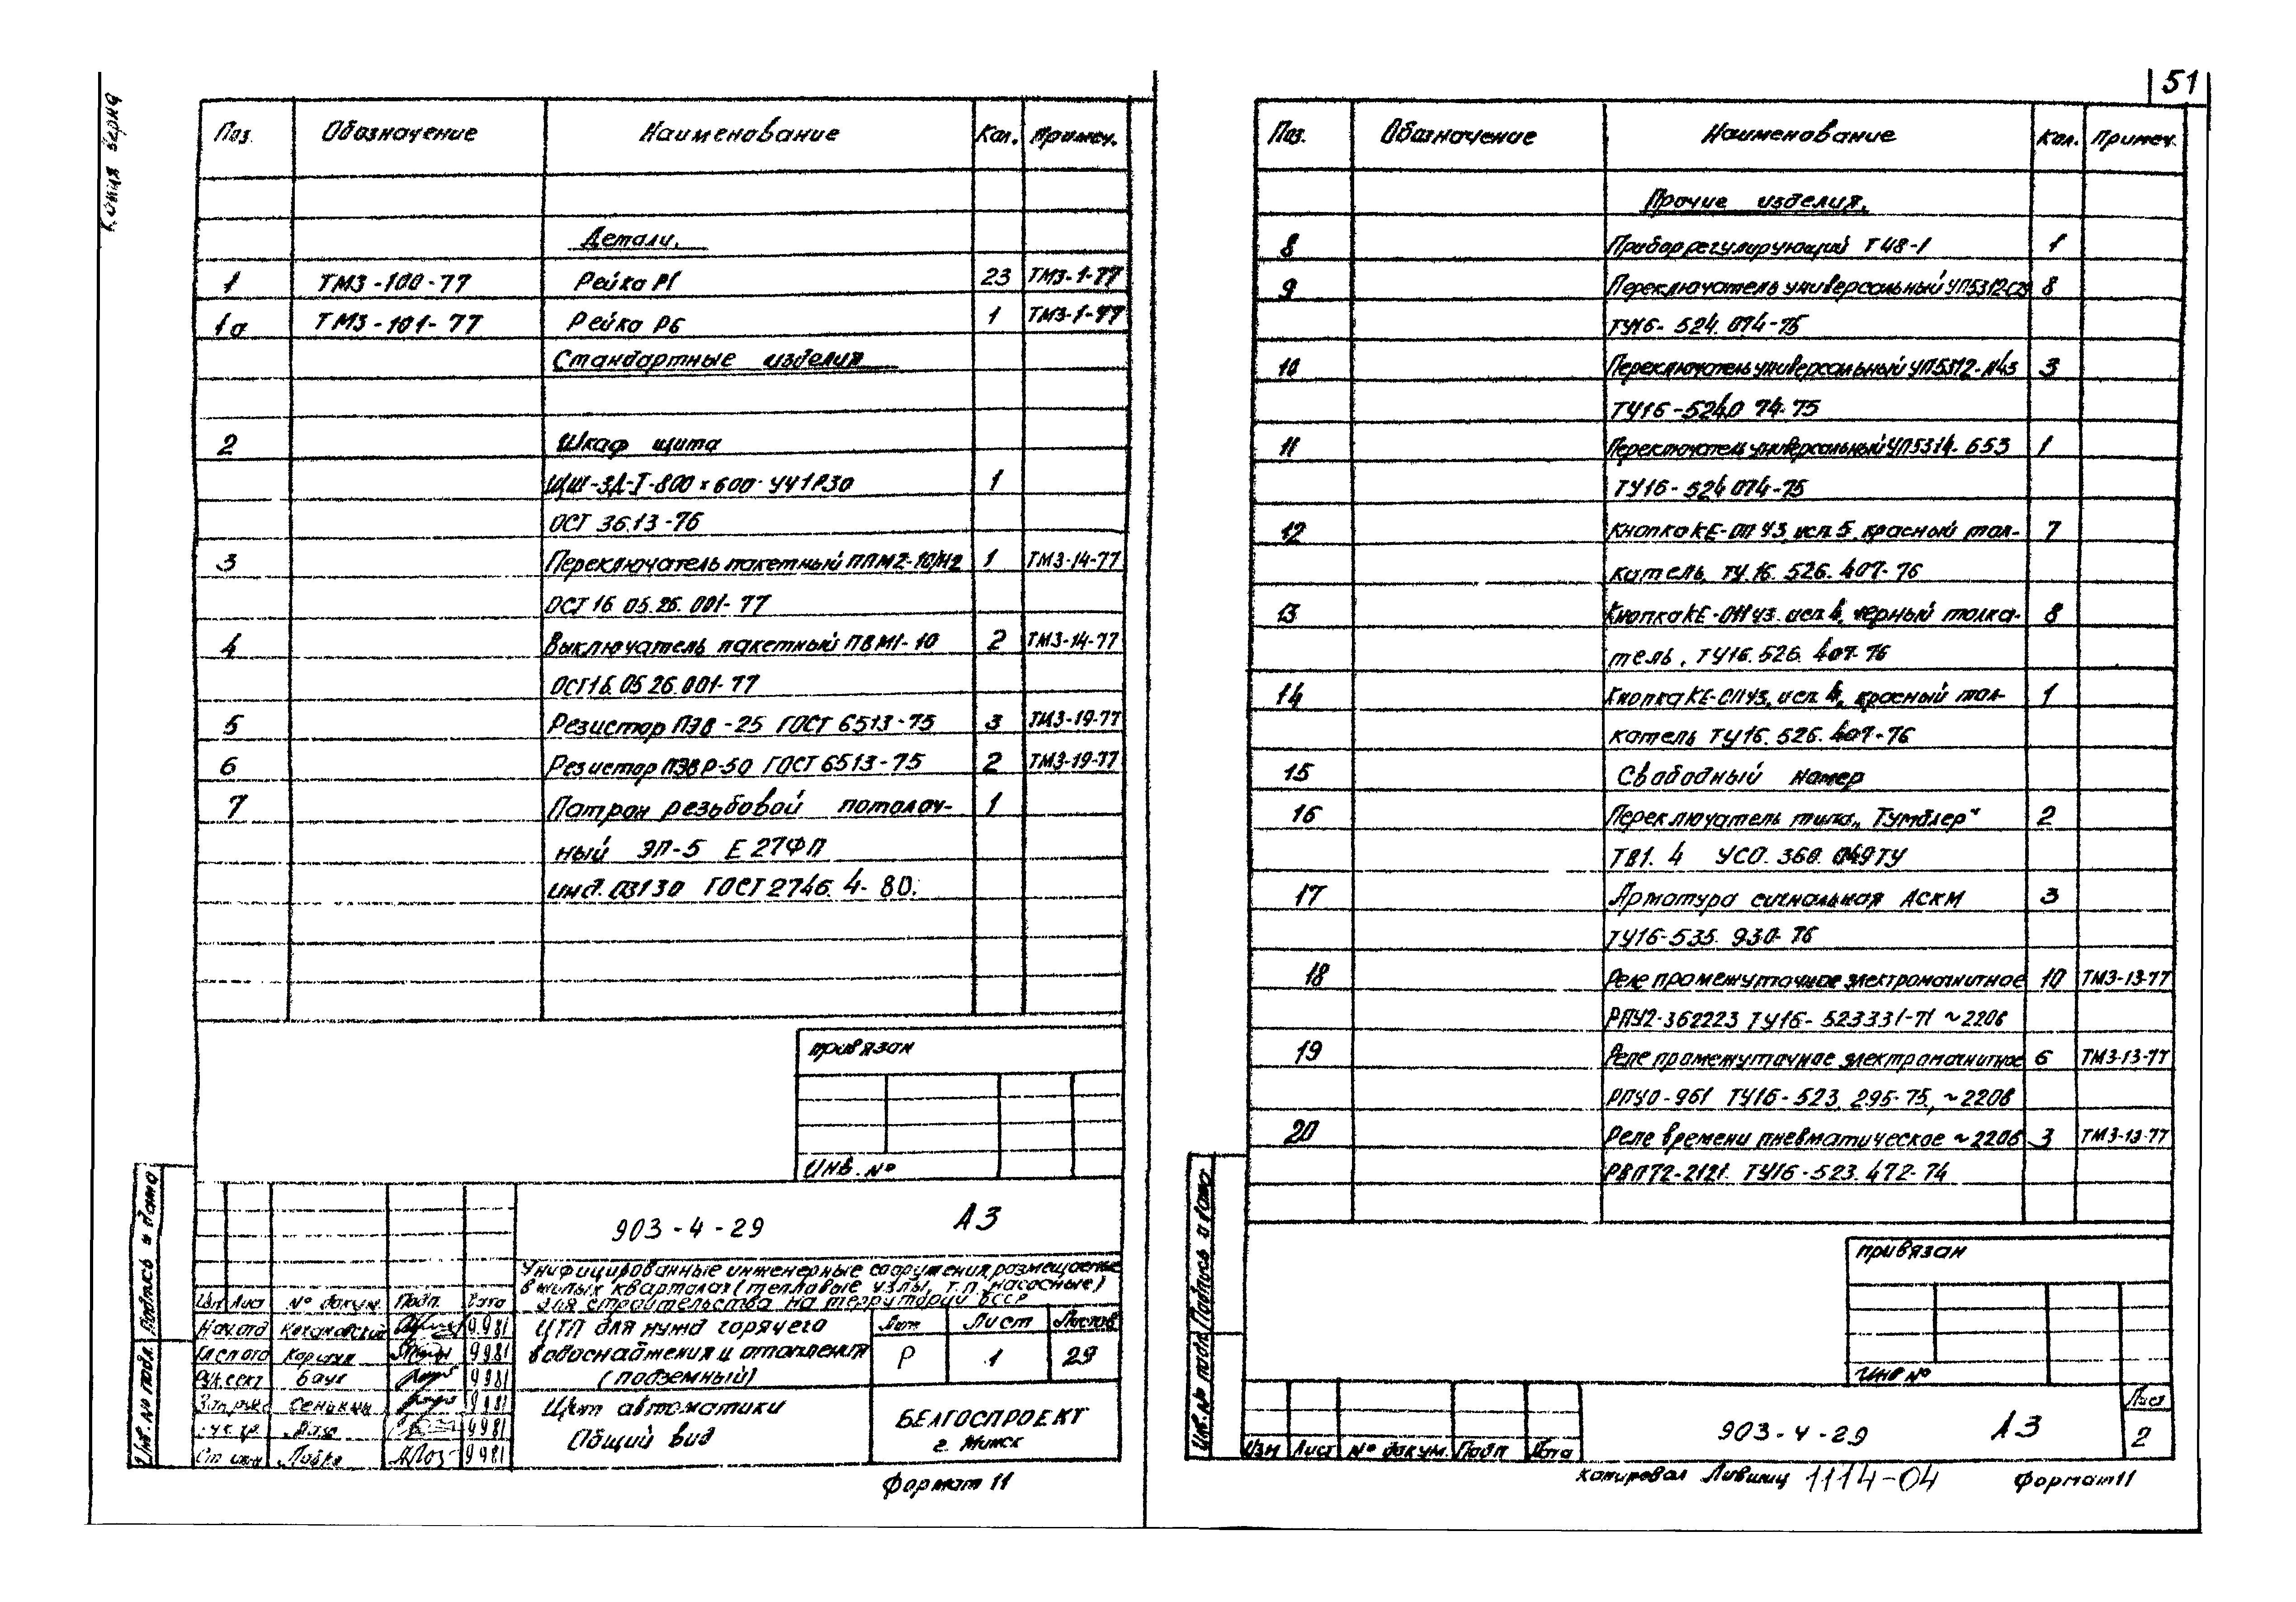 51
Копия верна
Поз. Обозначение Наименование Кол. Примеч.
Детали.
1 ТМ3-100-77 Рейка Р1 23 ТМ3-1-77
1а ТМ3-101-77 Рейка Р6 1 ТМ3-1-77
Стандартные изделия
2 Шкаф щита
ЩШ-ЗД-I-800×600-УЧ1Р30 1
ОСТ 36.13-76
3 Переключатель пакетный ППМ2-10/Н2 1 ТМ3-14-77
ОСТ 16 05.26.001-77
4 Выключатель пакетный ПВМ1-10 2 ТМ3-14-77
ОСТ16.05 26.001-77
5 Резистор ПЭВ-25 ГОСТ 6513-75 3 ТМ3-19-77
6 Резистор ПЭВР-50 ГОСТ 6513-75 2 ТМ3-19-77
7 Патрон резьбовой потолоч- 1
ный ЭП-5 Е27ФП
инд.03130 ГОСТ 2746.4-80.
привязан
Инв. №
903-4-29 А3
Унифицированные инженерные сооружения, размещаемые
в жилых кварталах (тепловые узлы, т.п., насосные)
для строительства на территории БССР
Изм Лист № докум. Подп. Дата
Нач.отд 9.9.81
Гл.сп.отд 9.9.81
Рук.сект Баук 9.9.81
9.9.81
9.9.81
Ст инж 9.9.81
ЦТП для нужд горячего
водоснабжения и отопления
(подземный)
Лит. Лист Листов
Р 1 29
Щит автоматики
Общий вид
БЕЛГОСПРОЕКТ
г. Минск
Формат 11
Инв. № подл. Подпись и дата
Поз. Обозначение Наименование Кол. Примеч.
Прочие изделия.
8 Прибор регулирующий Т48-1 1
9 Переключатель универсальный УП5312-С29 8
ТУ16-524.074-75
10 Переключатель универсальный УП5312-А43 3
ТУ16-524.074-75
11 Переключатель универсальный УП5314-Б53 1
ТУ16-524 074-75
12 Кнопка КЕ-011 У3, исп.5, красный тол- 7
катель, ТУ 16.526.407-76
13 Кнопка КЕ-011У3. исп.4, черный толка- 8
тель, ТУ16.526.407-76
14 Кнопка КЕ-011У3, исп.4, красный тол- 1
катель ТУ16.526.407-76
15 Свободный номер
16 Переключатель типа „Тумблер“ 2
ТВ1.4 УСО.360.049ТУ
17 Арматура сигнальная АСКМ 3
ТУ16-535.930-76
18 Реле промежуточное электромагнитное 10 ТМ3-13-77
РПУ2-362223 ТУ16-523331-71 ~220в
19 Реле промежуточное электромагнитное 6 ТМ3-13-77
РПУ0-961 ТУ16-523.295-75, ~220в
20 Реле времени пневматическое ~220в 3 ТМ3-13-77
РВП72-2121. ТУ16-523.472-74
привязан
Инв №
Изм Лист № докум. Подп Дата
903-4-29 А3
Лист
2
Копировал Лившиц 1114-04 Формат 11
Инв. № подл. Подпись и дата